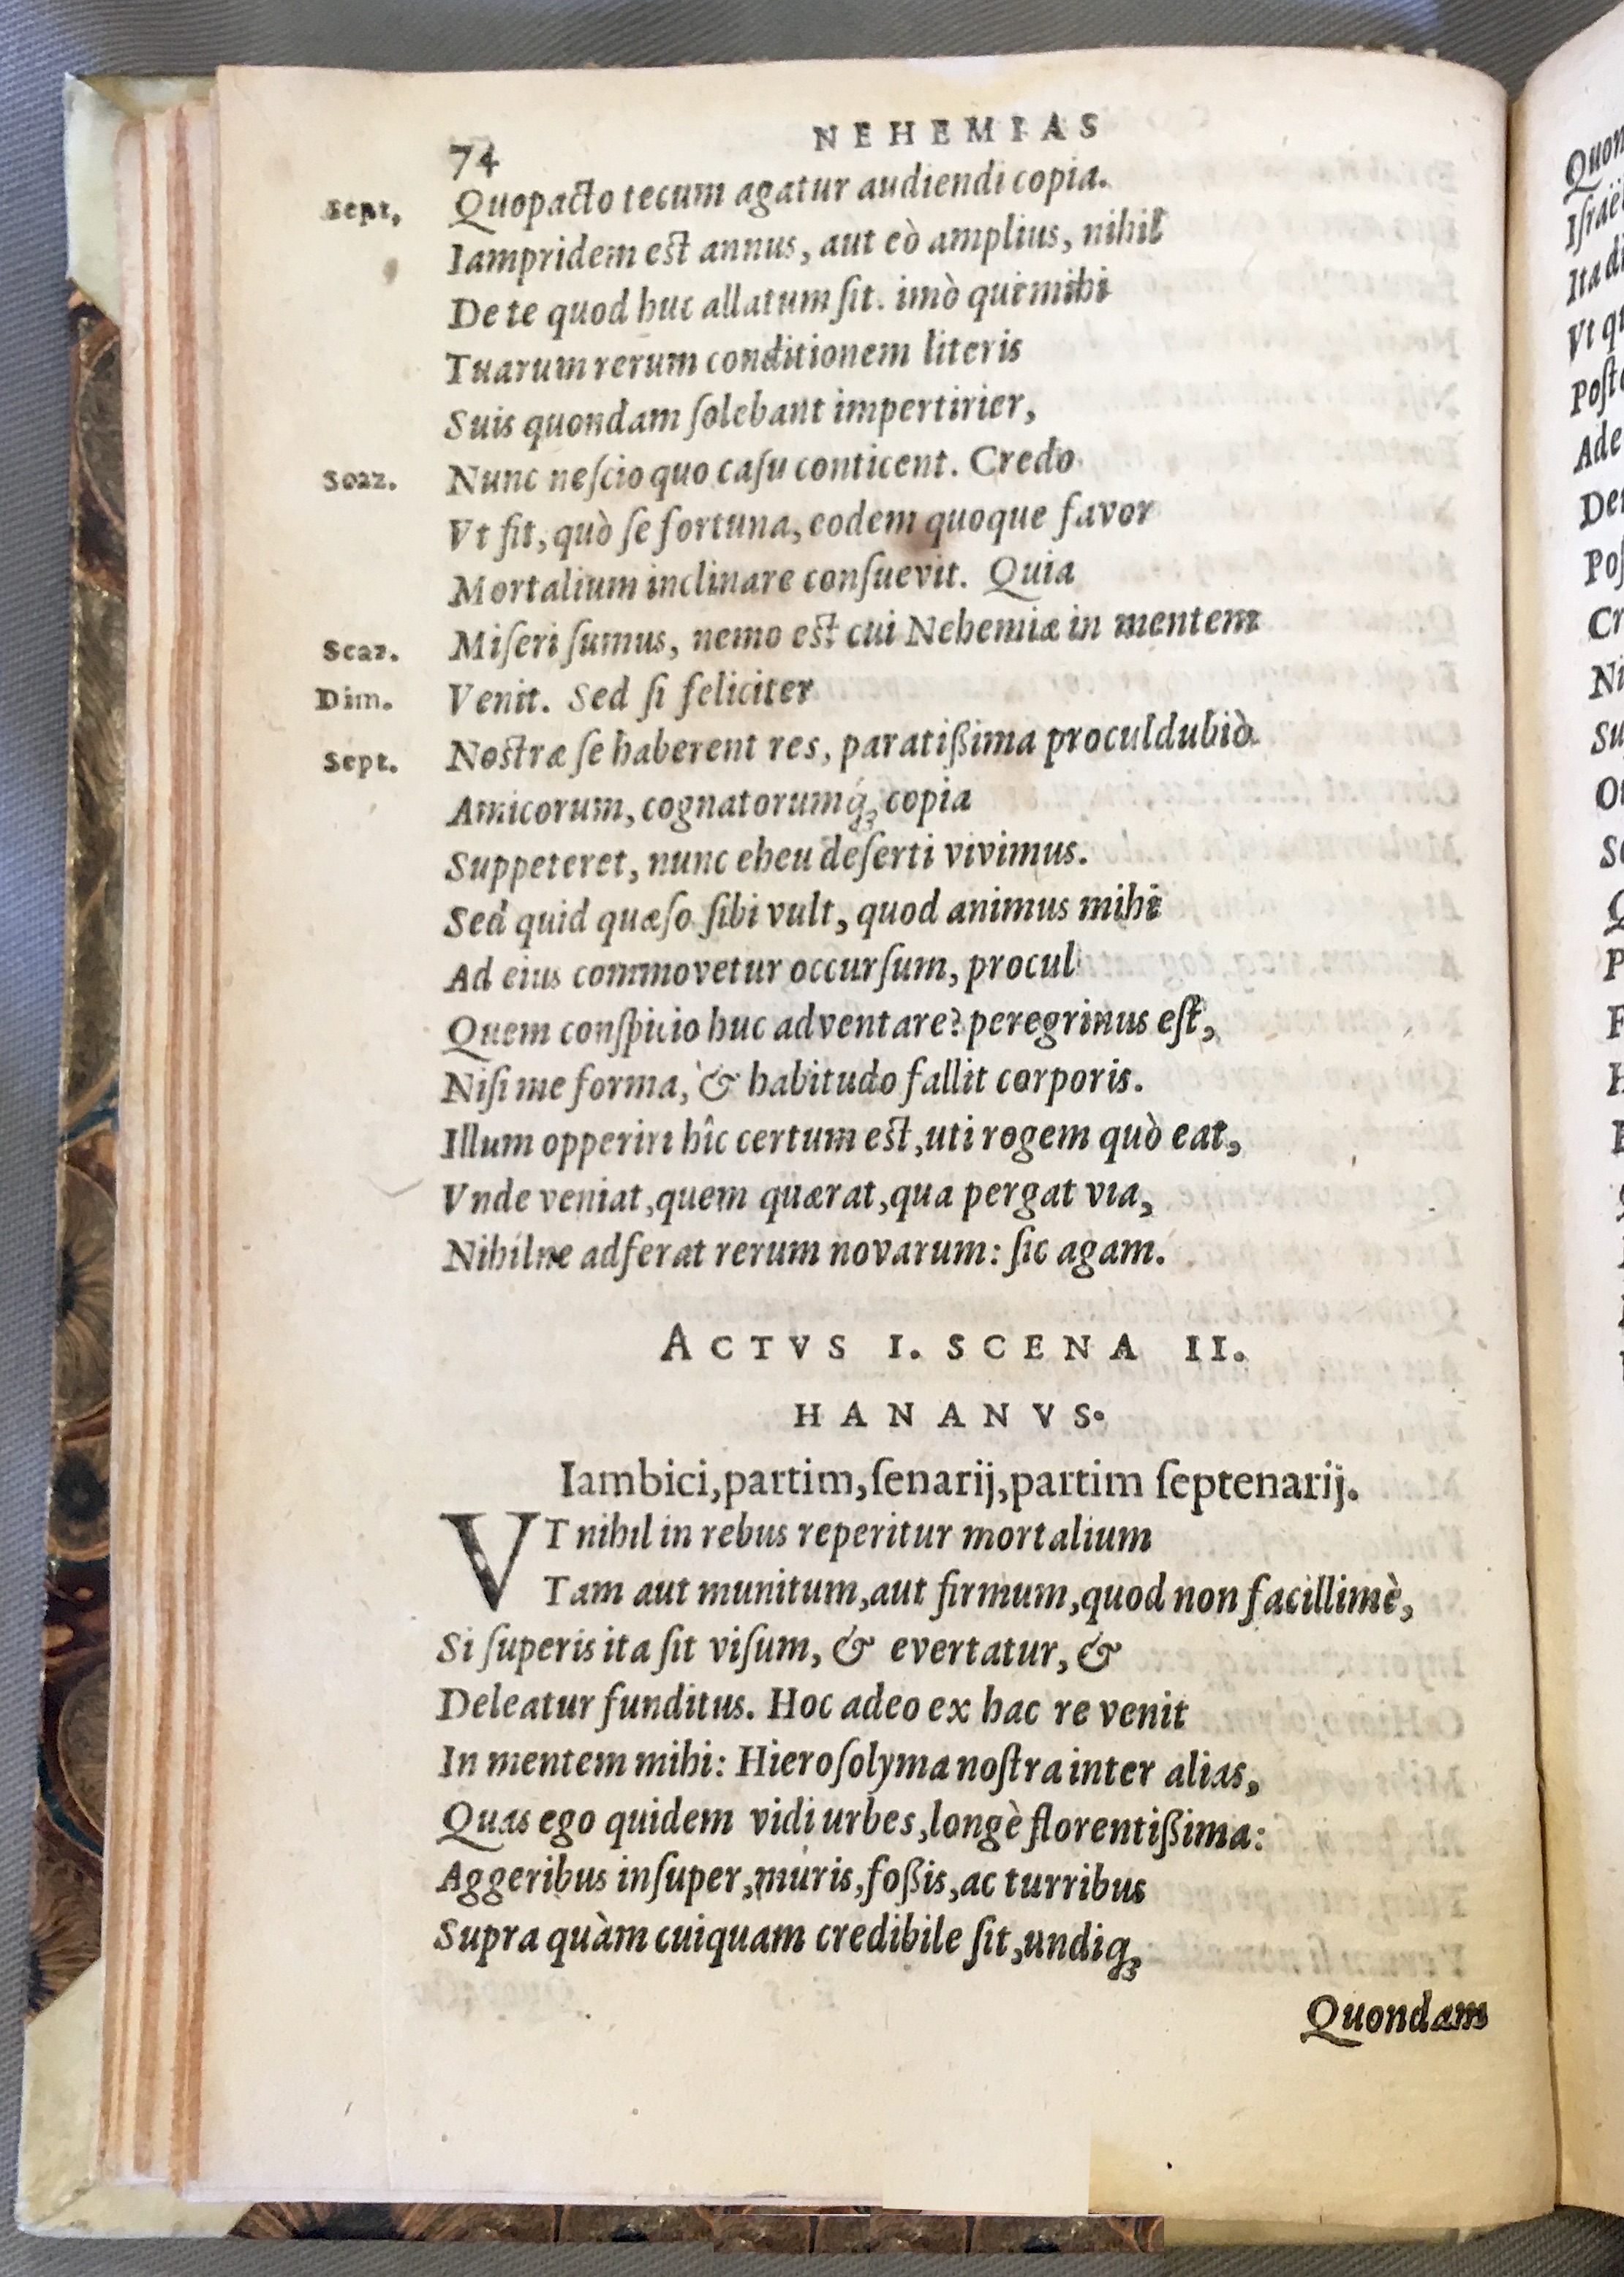 74 NEHEMIAS
Sept, Quopacto tecum agatur audiendi copia.
Iampridem est annus, aut eò amplius, nihil
De te quod huc allatum ſit. imò qui mihi
Tuarum rerum conditionem literis
Suis quondam ſolebant impertirier,
Scaz. Nunc neſcio quo caſu conticent. Credo
Vt fit, quò ſe fortuna, eodem quoque favor
Mortalium inclinare conſuevit. Quia
Scaz. Miſeri ſumus, nemo est cui Nehemiæ in mentem
Dim. Venit. Sed ſi feliciter
Sept. Nostræ ſe haberent res, paratißima proculdubiò
Amicorum, cognatorumq́; copia
Suppeteret, nunc eheu deſerti vivimus.
Sed quid quæſo ſibi vult, quod animus mihi
Ad eius commovetur occurſum, procul
Quem conſpicio huc adventare? peregrinus eſt,
Niſi me forma, & habitudo fallit corporis.
Illum opperiri hîc certum est, uti rogem quò eat,
Vnde veniat, quem quærat, qua pergat via,
Nihilne adferat rerum novarum: ſic agam.
ACTVS I. SCENA II.
HANANVS.
Iambici, partim, ſenarij, partim ſeptenarij.
VT nihil in rebus reperitur mortalium
Tam aut munitum, aut firmum, quod non facillimè,
Si ſuperis ita ſit viſum, & evertatur, &
Deleatur funditus. Hoc adeo ex hac re venit
In mentem mihi: Hieroſolyma noſtra inter alias,
Quas ego quidem vidi urbes, longè florentißima:
Aggeribus inſuper, muris, foßis, ac turribus
Supra quàm cuiquam credibile ſit, undiq;
Quondam
Quon
Iſraë
Ita di
Vt qu
Poſte
Ade
Der
Poſ
Cr
Ni
Su